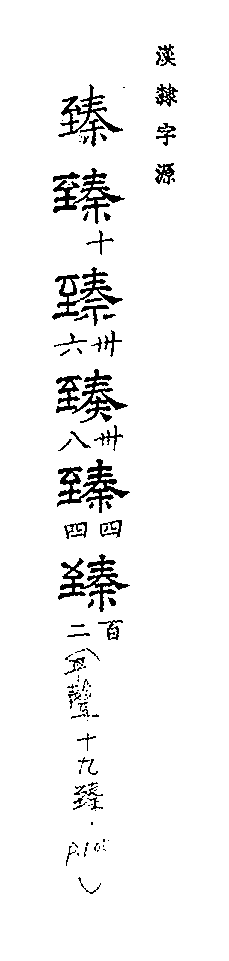 漢隸字源
臻
臻
十
臻
卅六
臻
卅八
臻
四四
臻
百二
(平聲十九臻.